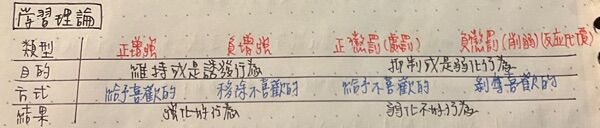 学習理論
類型 正增強 負增強 正懲罰(處罰) 負懲罰(削弱)(反应代價)
目的 維持或是誘發行為 抑制或是弱化行為
方式 給予喜歡的 移除不喜歡的 給予不喜歡的 剝奪喜歡的
結果 強化好行為 弱化不好行為